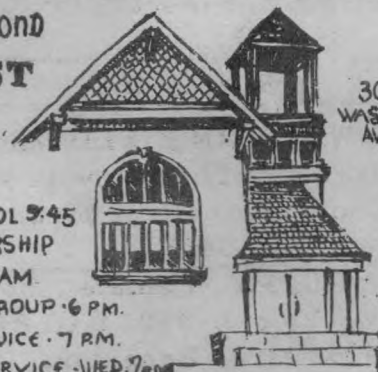 OND
ST
30
WAS
AV
OL 9:45
RSHIP
AM
ROUP · 6 P.M.
VICE · 7 P.M.
ERVICE · WED. 7PM